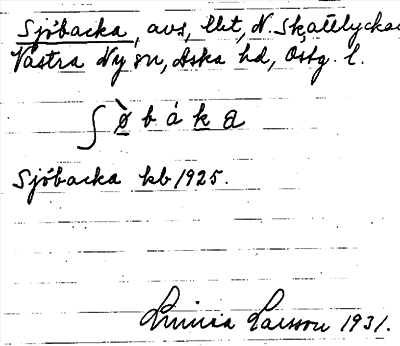 Sjöbacka, avs, lht, N. Skattlycka
Västra Ny sn, Aska hd, Östg. l.
ʃø̀bákа
Sjöbacka kb 1925.
Linnea Larsson 1931.